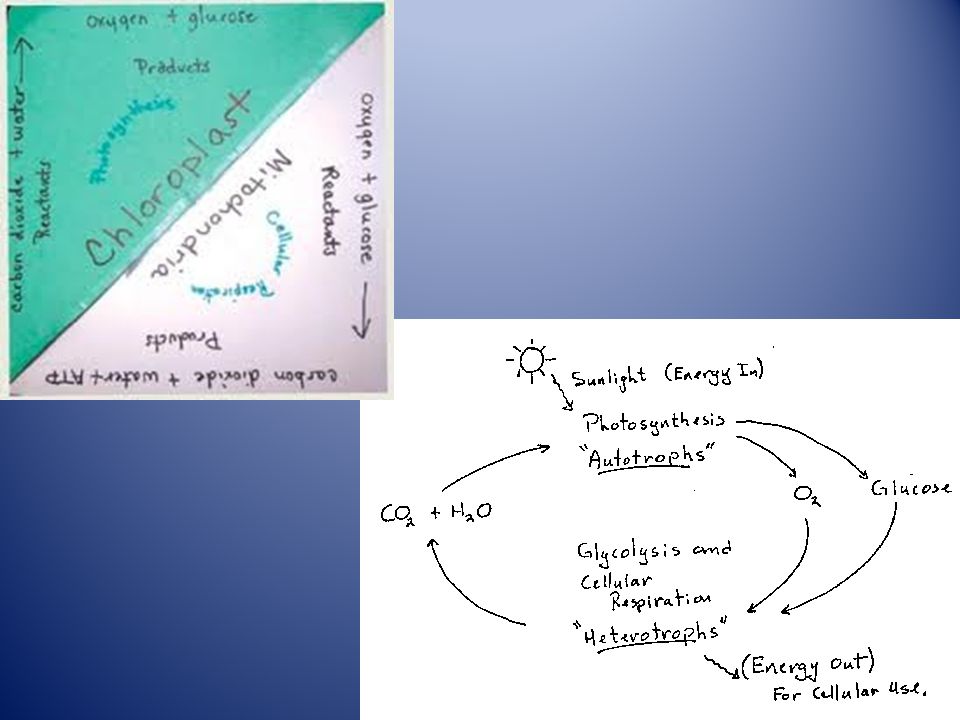 oxygen + glucose
Products
Photosynthesis
Chloroplast
carbon dioxide + water
Reactants
Mitochondria
oxygen + glucose
Reactants
Cellular Respiration
Products
carbon dioxide + water + ATP
Sunlight (Energy In)
Photosynthesis
"Autotrophs"
CO2 + H2O
O2
Glucose
Glycolysis and
Cellular
Respiration
"Heterotrophs"
(Energy Out)
For Cellular Use.